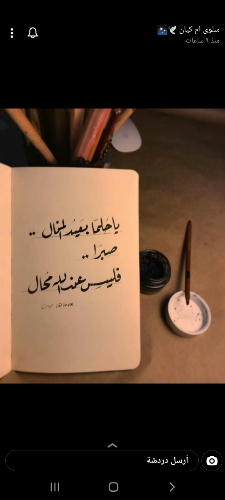 سلوى ام كيان
منذ ٩ ساعات
يا حلما بعيد المنال ..
صبرا ..
فليس عند الله محال
أرسل دردشة